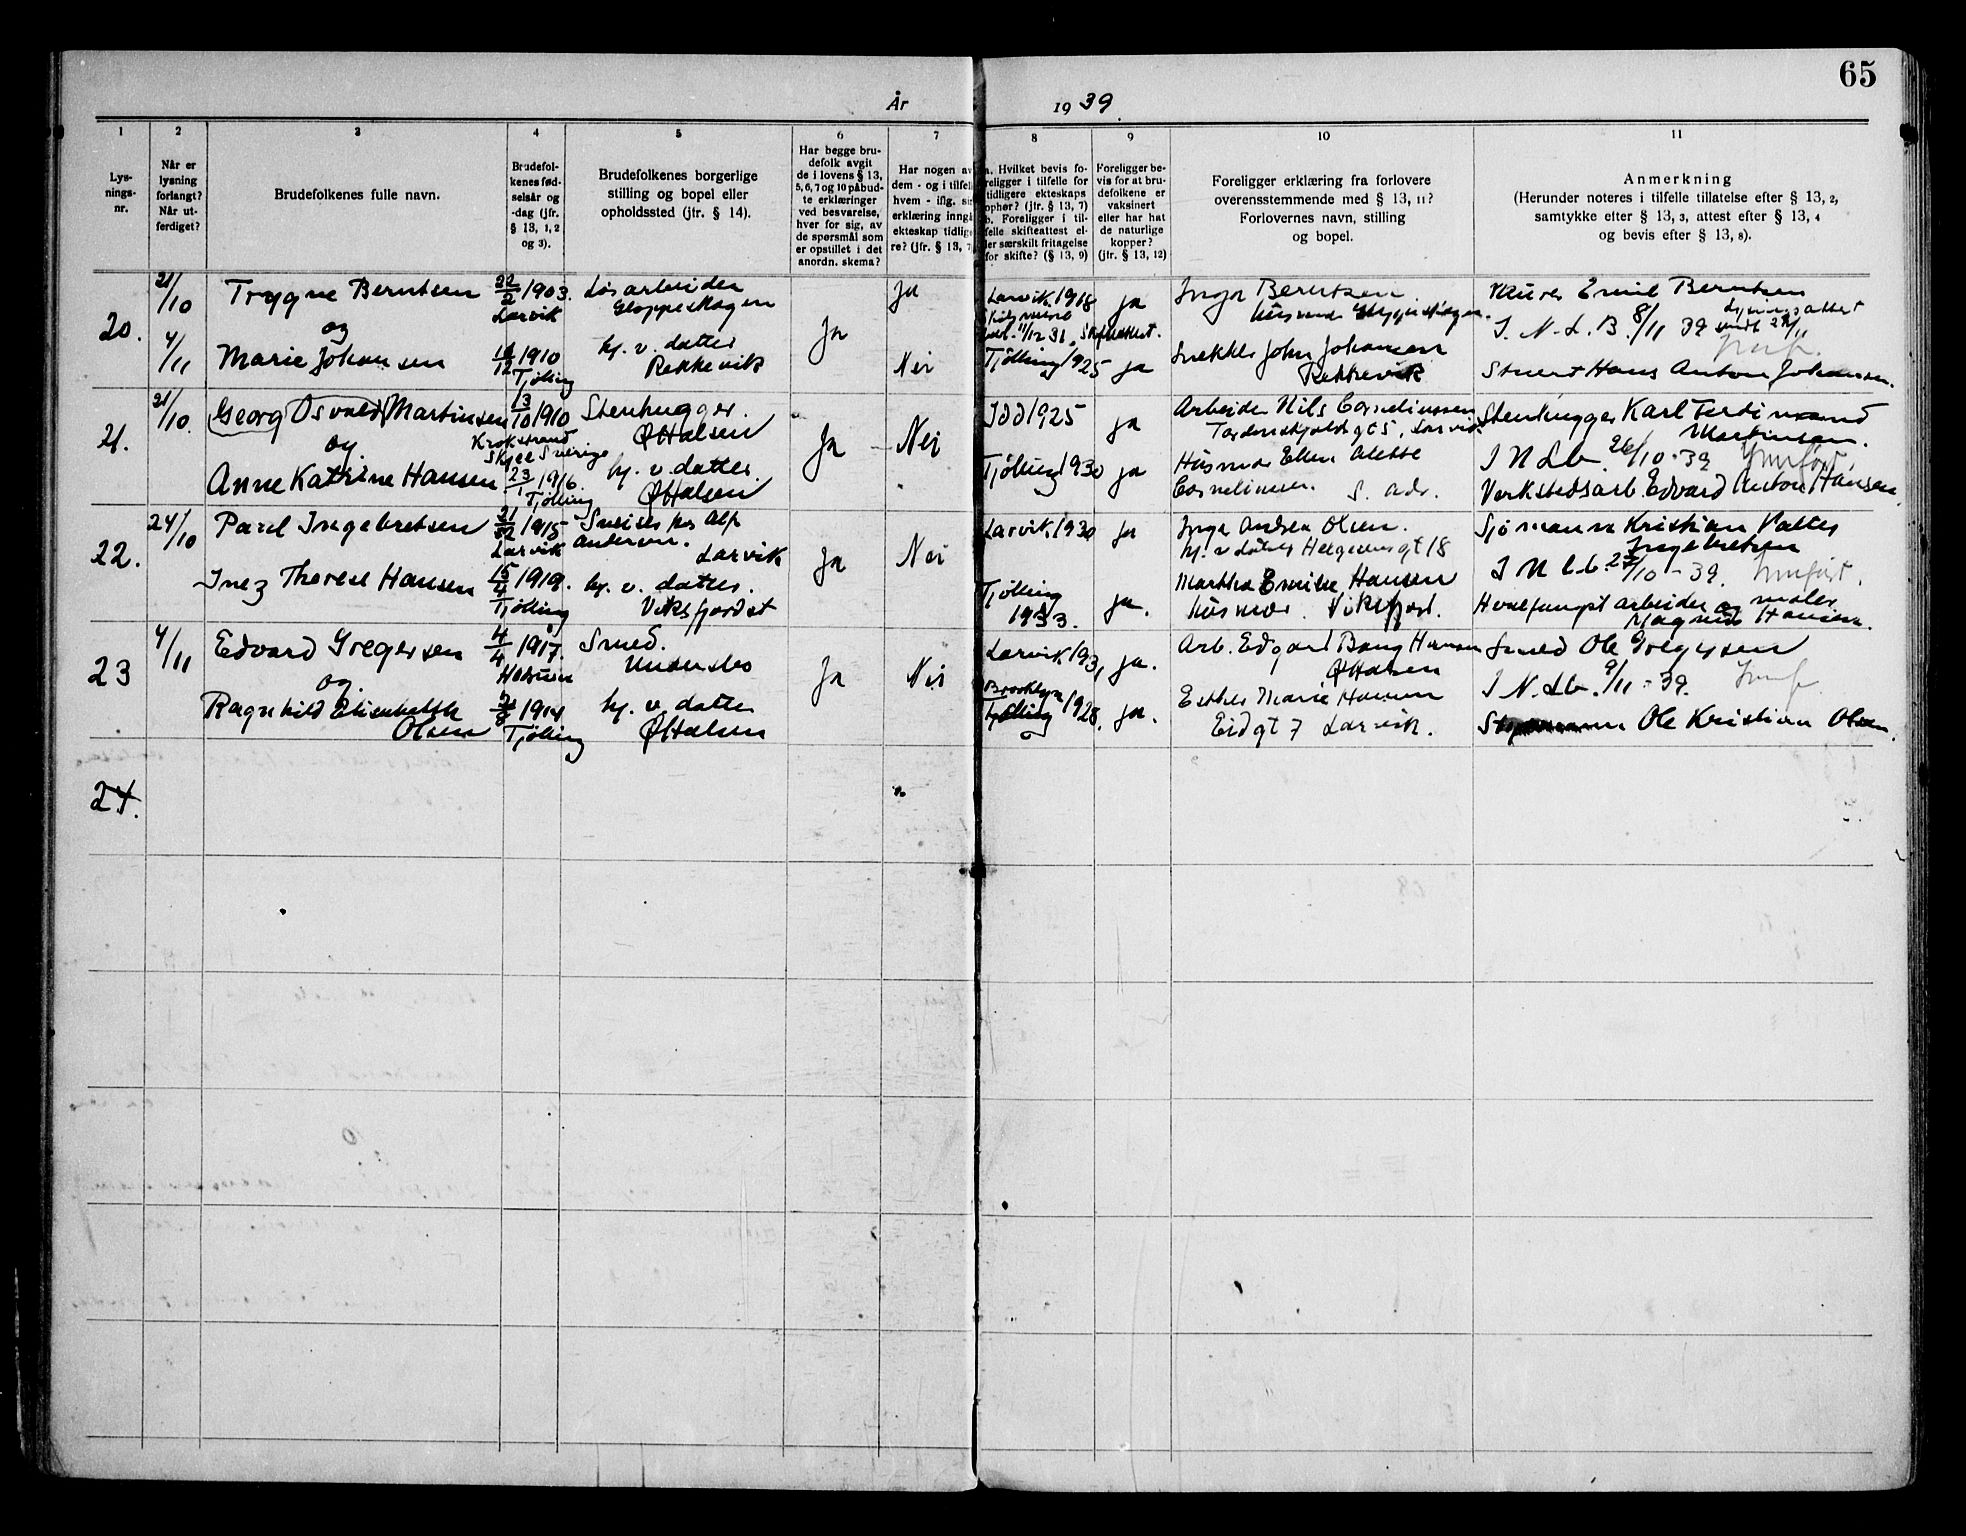 65
År 1939.
1
2
3
4
5
6
7
8
9
10
11
Lys-
nings-
nr.
Når er
lysning
forlangt?
Når ut-
ferdiget?
Brudefolkenes fulle navn.
Brudefol-
kenes fød-
selsår og
-dag (jfr.
§ 13, 1, 2
og 3).
Brudefolkenes borgerlige
stilling og bopel eller
opholdssted (jfr. § 14).
Har begge bru-
defolk avgit
de i lovens § 13,
5, 6, 7 og 10 påbud-
te erklæringer
ved besvarelse,
hver for sig, av
de spørsmål som
er opstillet i det
anordn. skema?
Har nogen av
dem - og i tilfelle
hvem - iflg. sin
erklæring inngå
ekteskap tidlige-
re? (jfr. § 13, 7
a. Hvilket bevis fo-
religger i tilfelle for
tidligere ekteskaps
ophør? (jfr. § 13, 7)
b. Foreligger i til-
felle skifteattest el-
ler særskilt fritagelse
for skifte? (§ 13, 9)
Foreligger be-
vis for at bru-
defolkene er
vaksinert
eller har hat
de naturlige
kopper?
(jfr. § 13, 12)
Foreligger erklæring fra forlovere
overensstemmende med § 13, 11?
Forlovernes navn, stilling
og bopel.
Anmerkning
(Herunder noteres i tilfelle tillatelse efter § 13, 2,
samtykke efter § 13, 3, attest efter § 13, 4
og bevis efter § 13, 8).
20.
21/10
4/11
Trygve Berntsen
og
Marie Johansen
22/2 1903.
Larvik
/12 1910
Tjølling
Løsarbeider
Gloppeskogen
hj. v. datter
Rekkevik
Ja
Ja
Nei
Larvik 1918
11/12 31,
Tjølling 1925
ja
ja
Inga Berntsen.
Snekker John Johansen
Rekkevik
Murer Emil Berntsen
I. N. L. B. 8/11 39
Stuert Hans Anton Johansen.
21.
21/10
Georg Osvald Martinsen
og
Anne Katrine Hansen
13/10 1910
Krokstrand
Skjee Sverige
23/1 1916.
Tjølling
Stenhugger.
Ø Halsen
hj. v. datter
Ø Halsen
Ja
Nei
Idd 1925
Tjølling 1930
ja
ja
Arbeider Nils Corneliussen
Tordenskjolds gt 5, Larvik
Husmor Ellen Alette
Corneliussen. S. adr.
Stenhugger Karl Ferdinand
Martinsen.
I N Lb. 26/10 - 39 Innført
Verkstedsarb. Edvard Anton Hansen
22.
24/10
Paul Ingebretsen
Inez Therese Hansen
21/12 1915
Larvik
15/4 1919.
Tjølling
Andersen.
Larvik
hj. v. datter.
Viksfjordet
Ja
Nei
Larvik 1930
Tjølling
1933.
ja
ja.
Inga Andrea Olsen.
hj. v datter Helgesens gt 18
Martha Emilie Hansen
Husmor. Viksfjord.
Sjømann Kristian Valter
Ingebretsen
I N L b. 27/10 - 39. Innført.
Hvalfangstarbeider og maler
Magnus Hansen.
23
4/11
Edvard Gregersen
og
Ragnhild Elisabeth
Olsen
4/4 1917.
Hedrum
1914
Tjølling
Smed.
Undersbo
hj. v. datter
Ø Halsen
Ja
Nei
Larvik 1931
Brooklyn
Tjølling 1928.
ja.
ja.
Arb. Edgar Bang Hansen
Ø Halsen
Esther Marie Hansen
Eidgt 7 Larvik.
Smed Ole Gregersen
I N. Lb. 9/11 - 39. Innf
Ole Kristian Olsen.
24.